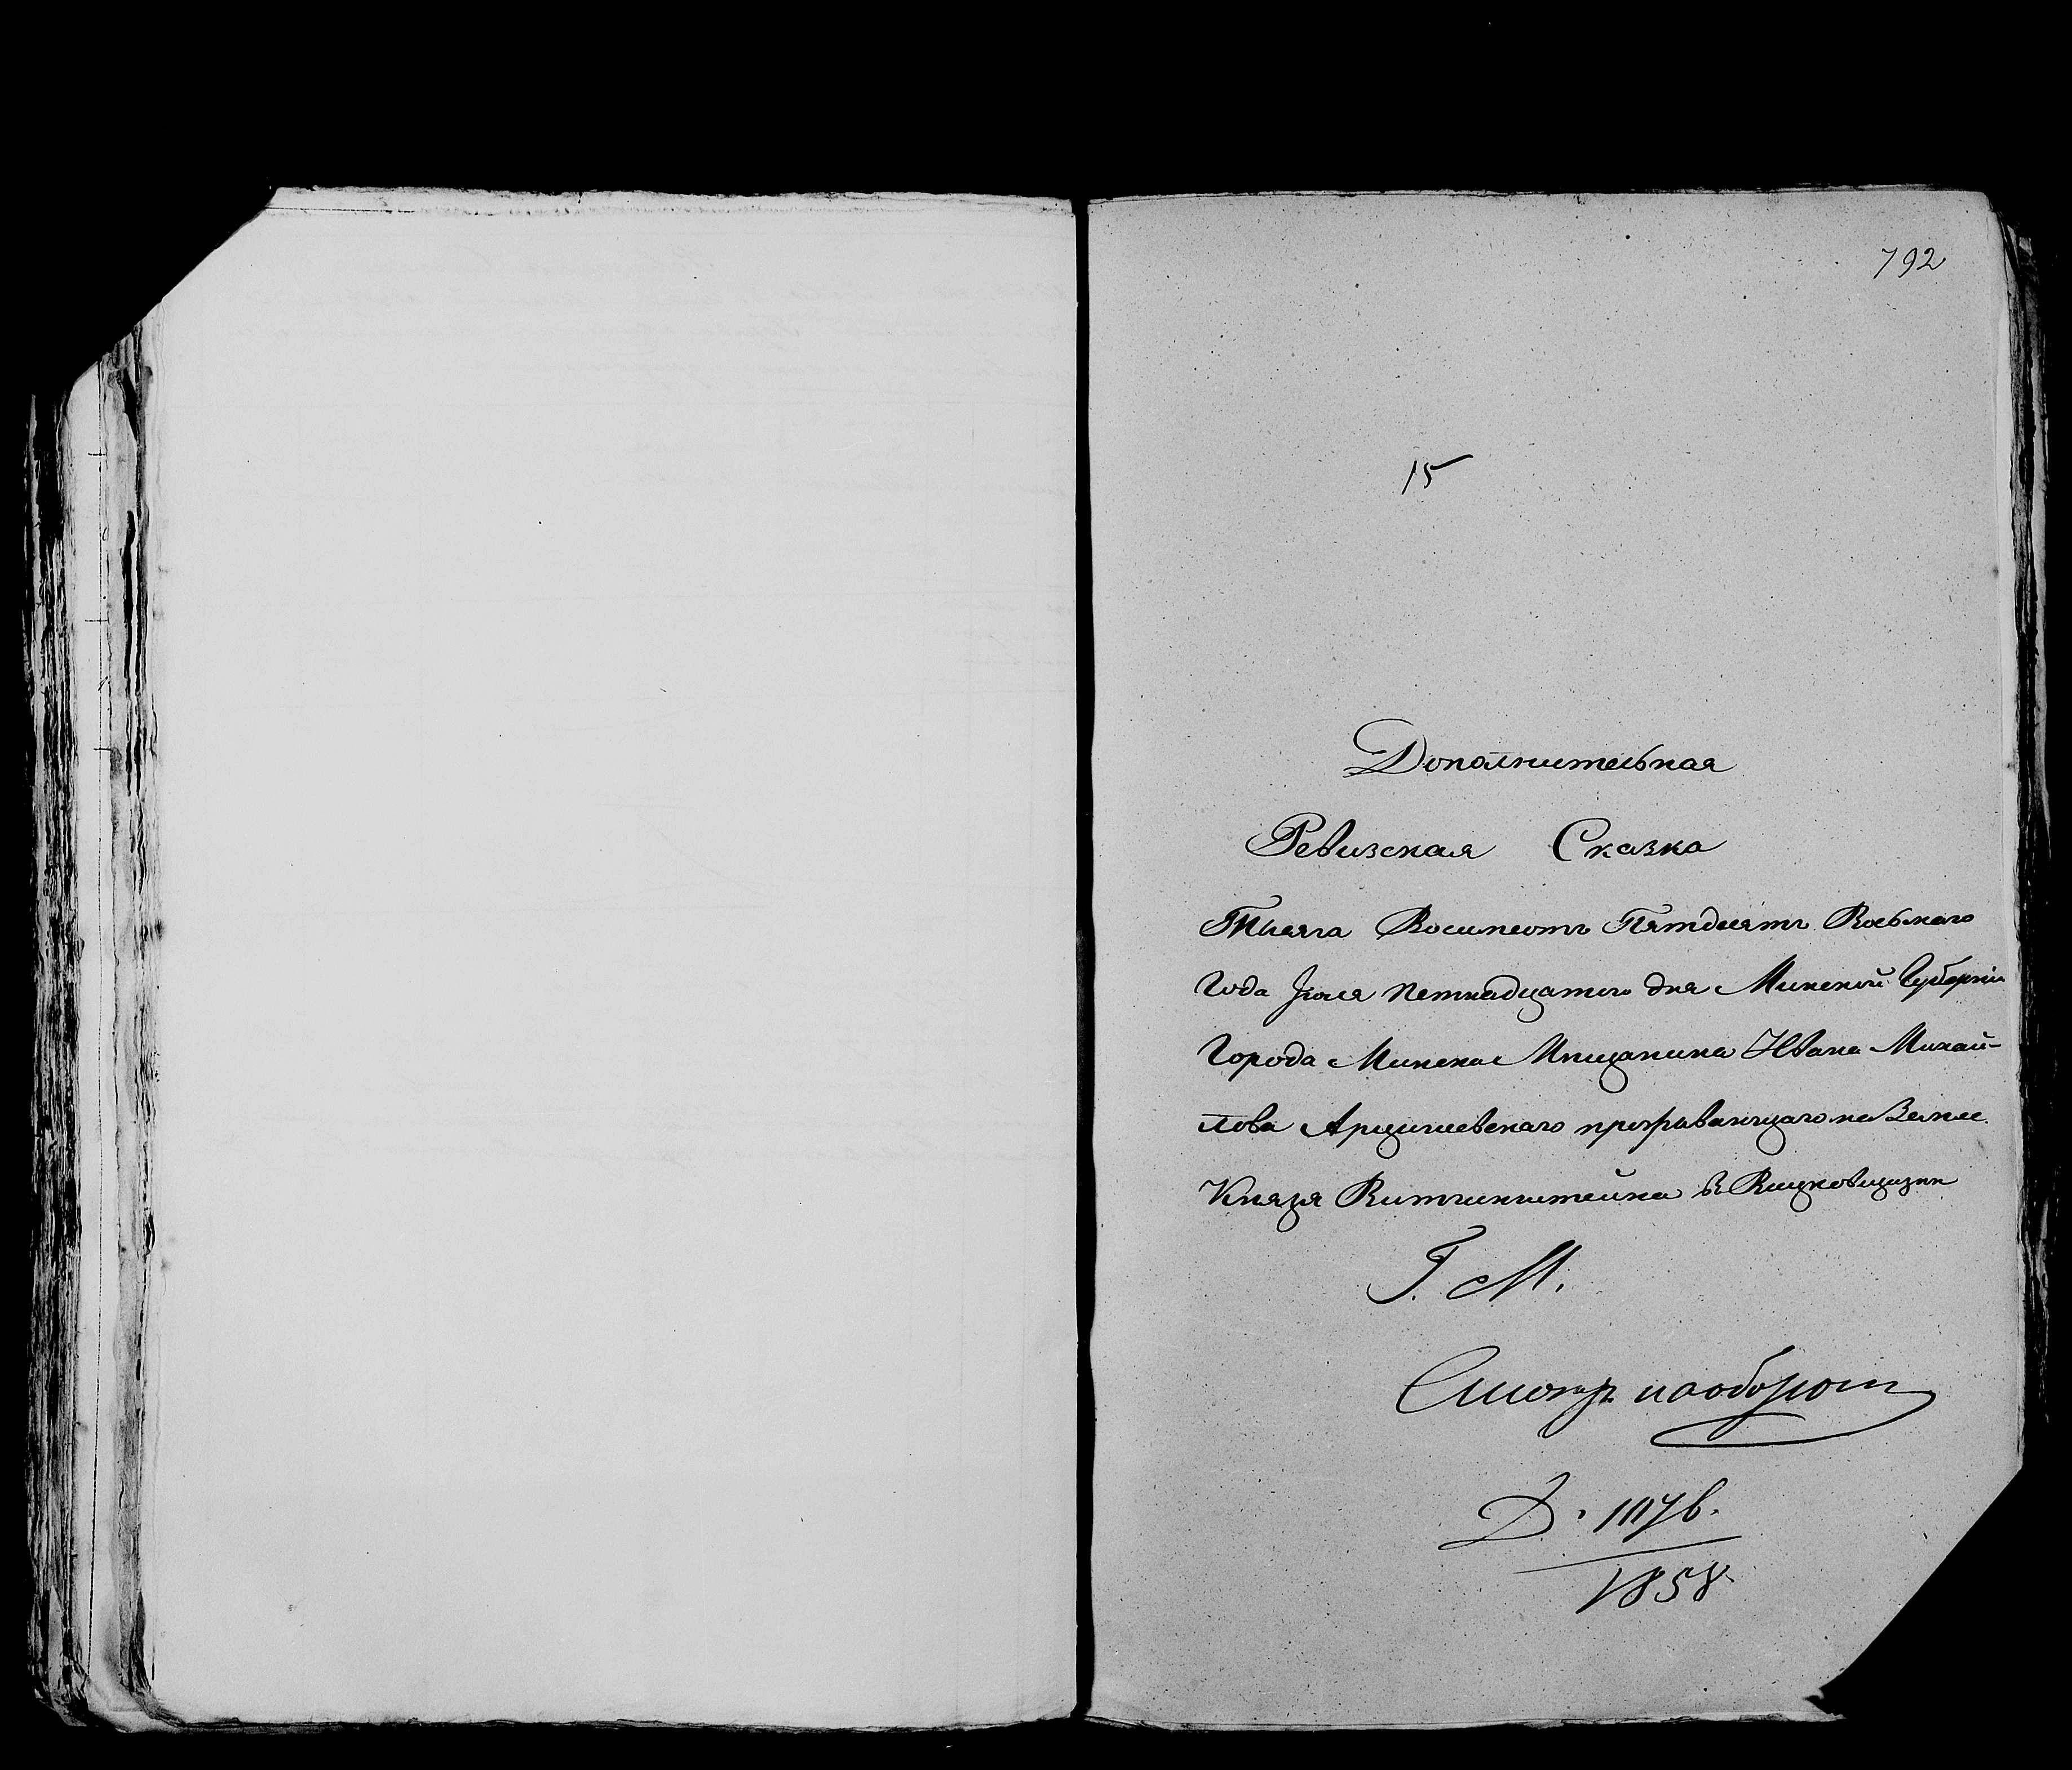 792
15
Дополнительная
Ревизская Сказка
Тысяча Восимсотъ Пятдесятъ Восьмаго
Года Июля петнадцатого дня Минской Губерніи
Города Минска Мещанина Ивана Михай-
лова Арцишевскаго прозываущаго на Земле
Князя Витгинштейна в
Г. М.
Смотр. наоборот
Д. 1117б.
1858